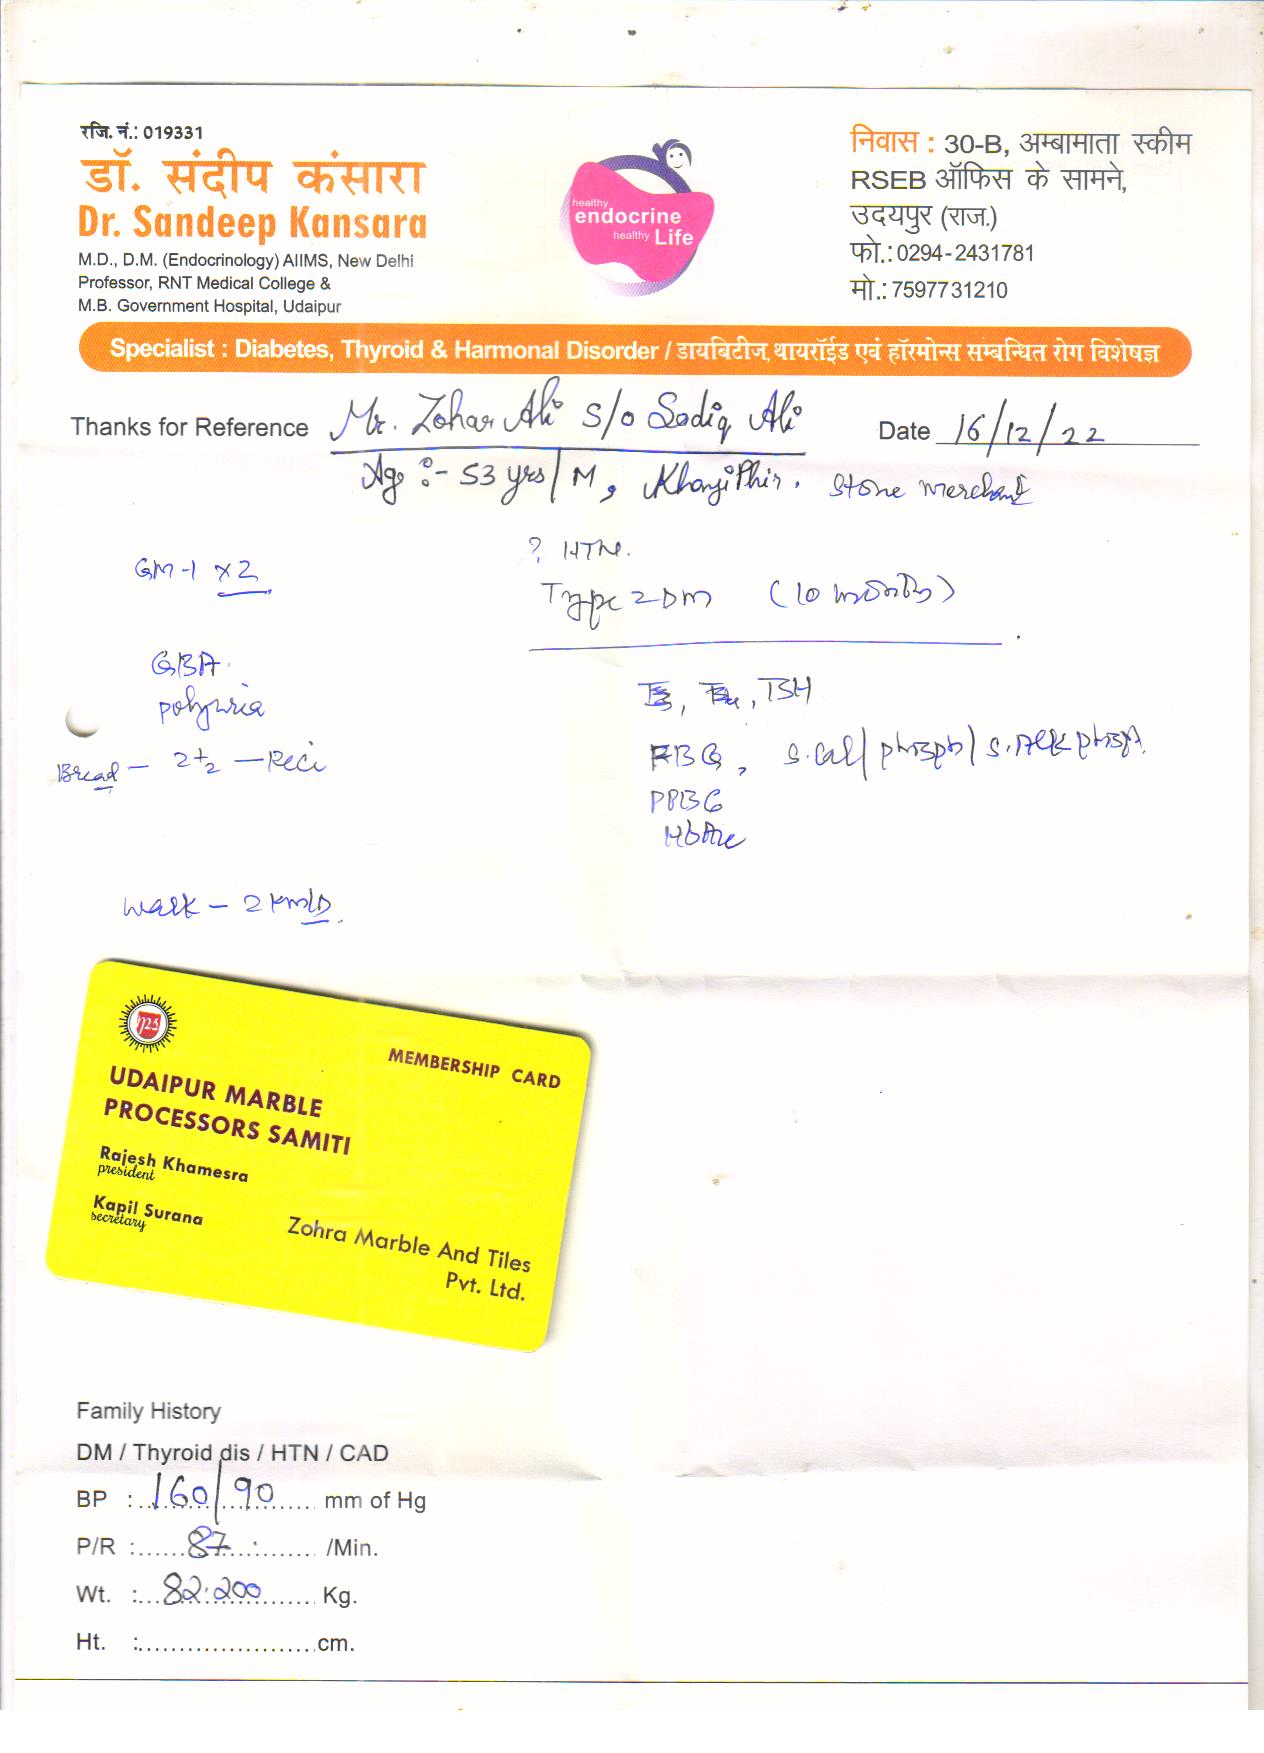 रजि. नं.: 019331
डॉ. संदीप कंसारा
Dr. Sandeep Kansara
M.D., D.M. (Endocrinology) AIIMS, New Delhi
Professor, RNT Medical College &
M.B. Government Hospital, Udaipur
healthy
endocrine
healthy Life
निवास : 30-B, अम्बामाता स्कीम
RSEB ऑफिस के सामने,
उदयपुर (राज.)
फो.: 0294-2431781
मो.: 7597731210
Specialist : Diabetes, Thyroid & Harmonal Disorder / डायबिटीज, थायरॉईड एवं हॉरमोन्स सम्बन्धित रोग विशेषज्ञ
Thanks for Reference Mr. Zohar Ali S/o Sadiq Ali Date 16/12/22
Age :- 53 yrs/M, Stone Merchant
? HTN.
GM-1 x2
Type 2 DM (10 months)
GBA.
polyuria
T3, T4, TSH
Bread - 2+2 -
FBG, S. Cal/phosph/S. Alk phosph.
PPBG
HbA1c
walk - 2 km/D.
MEMBERSHIP CARD
UDAIPUR MARBLE
PROCESSORS SAMITI
Rajesh Khamesra
president
Kapil Surana
secretary
Zohra Marble And Tiles
Pvt. Ltd.
Family History
DM / Thyroid dis / HTN / CAD
BP : 160/90 mm of Hg
P/R : 87 /Min.
Wt. : 82.200 Kg.
Ht. : cm.